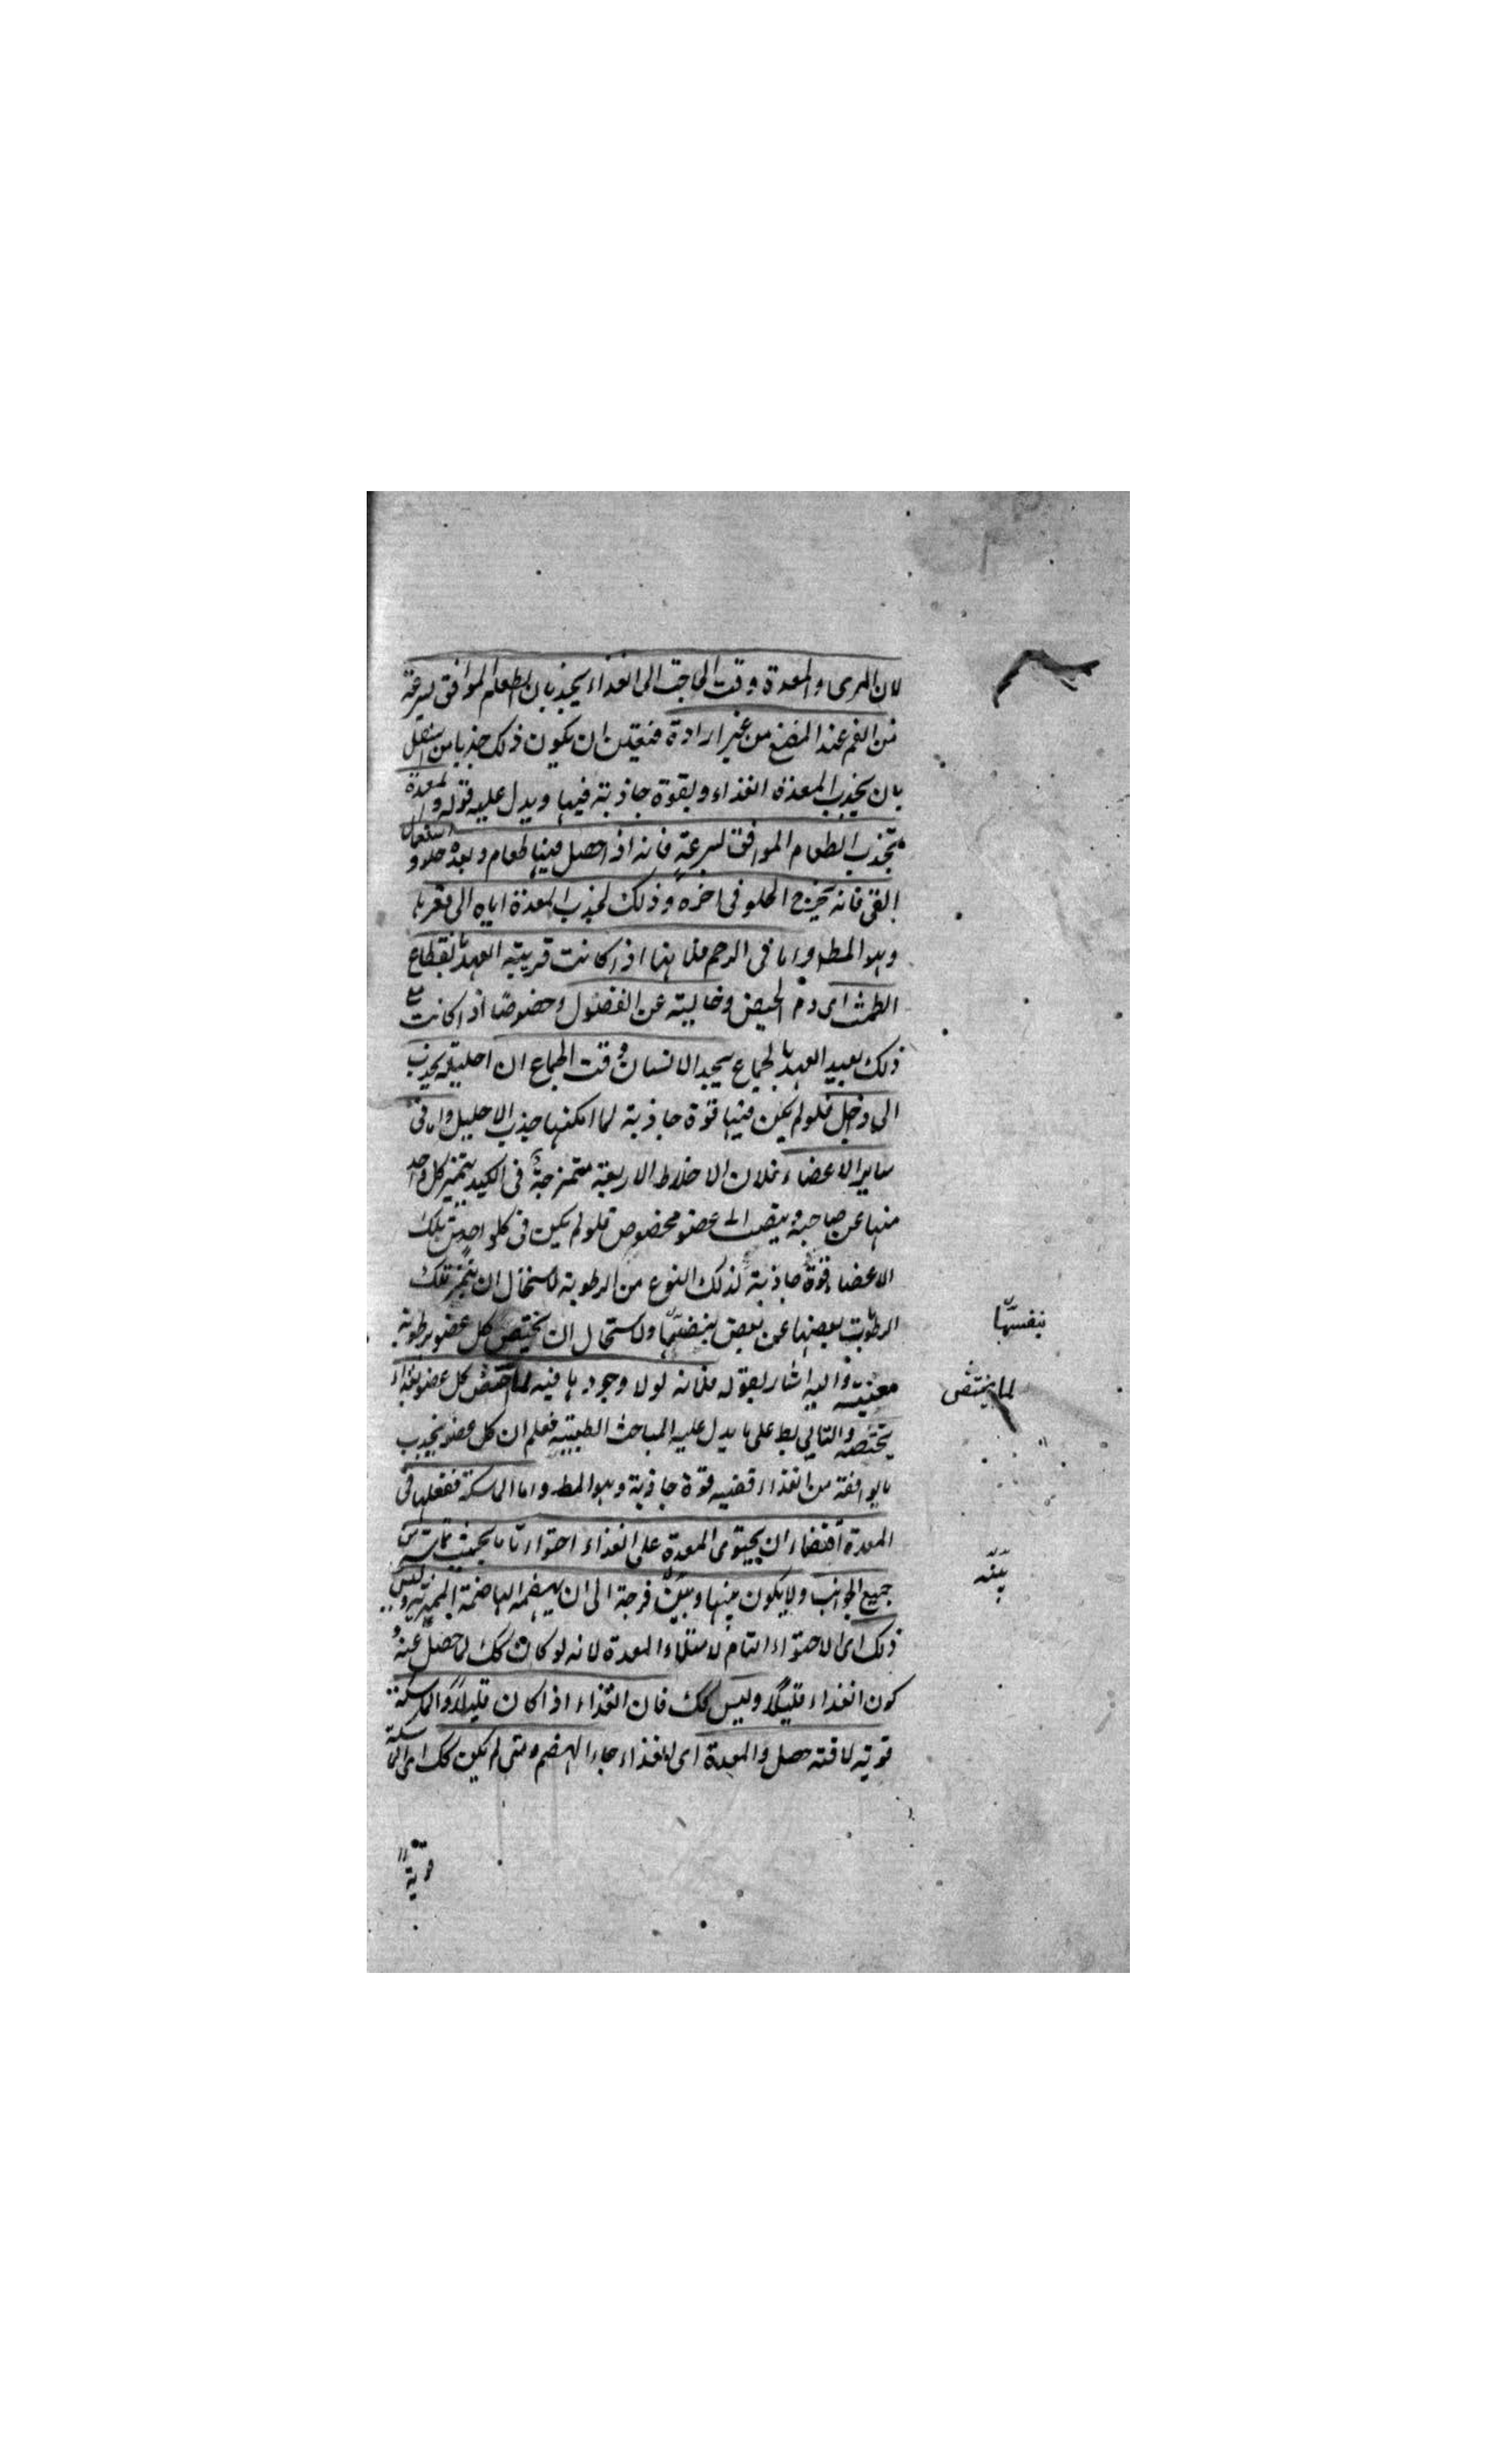 لان المرى والمعدة وقت الحاجة الى الغذاء يجذبان الطعام الموافق بسرعة
من الفم عند المضغ من غير ارادة فتعين ان يكون ذلك جذبا من اسفل
بان يجذب المعدة الغذاء وبقوة جاذبة فيها ويدل عليه قوله والمعدة
تجذب الطعام الموافق بسرعة فانه اذا حصل فيها طعام وبعده حلو و استعمال
القئ فانه يخرج الحلو فى اخره وذلك لجذب المعدة اياه الى قعرها
وهو المط واما فى الرحم فلانها اذا كانت قريبة العهد بانقطاع
الطمث اى دم الحيض وخالية عن الفضول وخصوصا اذا كانت مع
ذلك بعيد العهد بالجماع يجد الانسان وقت الجماع ان احليله يجذب
الى داخل فلو لم يكن فيها قوة جاذبة لما امكنها جذب الاحليل واما فى
ساير الاعضاء فلان الاخلاط الاربعة ممتزجة فى الكبد يتميز كل واحد
منها عن صاحبه وينصب الى عضو مخصوص فلو لم يكن فى كل واحد من تلك
الاعضاء قوة جاذبة لذلك النوع من الرطوبة لاستحال ان يتميز تلك
الرطوبات بعضها عن بعض بنفسها ولاستحال ان يختص كل عضو برطوبة
معينة واليه اشار بقوله فلانه لولا وجودها فيه لما اختص كل عضو بغذاء
يختصه والتالى بط على ما يدل عليه المباحث الطبية فعلم ان كل عضو يجذب
ما يوافقه من الغذاء ففيه قوة جاذبة وهو المط واما الماسكة ففعلها فى
المعدة اقتضاء ان يحتوى المعدة على الغذاء احتواء تاما بحيث تماسه من
جميع الجوانب ولا يكون بينها وبين فرجة الى ان يهضمه الهاضمة المميزة وليس
ذلك اى الاحتواء التام لامتلاء المعدة لانه لو كان كك لما حصل عند
كون الغذاء قليلا وليس كك فان الغذاء اذا كان قليلا والماسكة
قوية لاقته حصل والمعدة اى للغذاء جاد الهضم ومتى لم يكن كك اى الماسكة
قوية
بنفسها
لما يختص
بينه